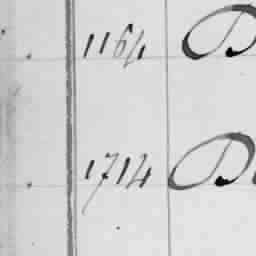 1164 B
1714 B